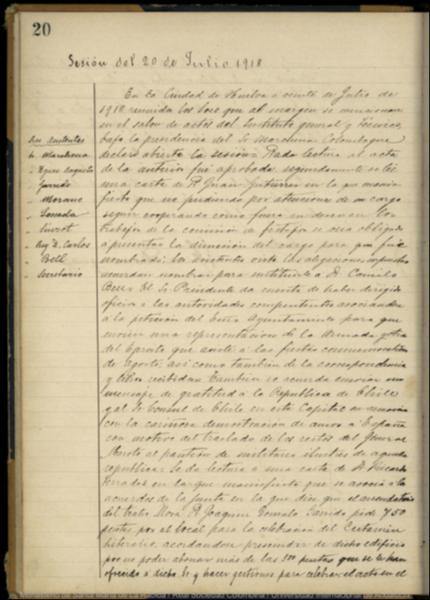 20
Sesión del 20 de Julio 1918
Sres Asistentes
Sr. Marchena
" Garrido
" Moreno
" Bell
Secretario
En la Ciudad de Huelva a veinte de Julio de
1918 reunida los Socs que al margen se mencionan
en el salon de actos del Instituto general y Técnico,
bajo la presidencia del Sr Marchena Colombo que
declaró abierta la sesión. Dada lectura al acta
de la anterior fué aprobada seguidamente se leé
una carta de D. Juan Gutierrez en la que mani
fiesta que no pudiendo por atenciones de su cargo
seguir cooperando como fuera su deseo en los
trabajos de la comisión de festejos se vé obligado
a presentar la dimisión del cargo para que fué
nombrado; los asistentes ante las alegaciones
acuerdan nombrar para sustituirle a D. Camilo
Bell. El Sr Presidente da cuenta de haber dirigido
oficio a las autoridades competentes asociandose
a la petición del Excmo Ayuntamiento para que
envien una representación de la Armada y otra
del Ejercito que asista a las fiestas conmemorativas
de Agosto, así como tambien de la correspondencia
y libros recibidos. Tambien se acuerda enviar un
mensaje de gratitud a la Republica de Chile
y al Sr Consul de Chile en esta Capital
con la cariñosa demostración de amor a España
con motivo del traslado de los restos del General
al panteón de militares ilustres de aquella
republica. Se da lectura a una carta de D.
Terrades en la que manifiesta que se asocia a los
acuerdos de la Junta en la que dice que el arrendatario
del teatro Mora D. Joaquin Gonzalo Garrido pide 750
pesetas por el local para la celebración del Certamen
literario, acordandose prescindir de dicho edificio
por no poder abonar más de las 500 pesetas que se le han
ofrecido a dicho Sr y hacer gestiones para celebrar el acto en el